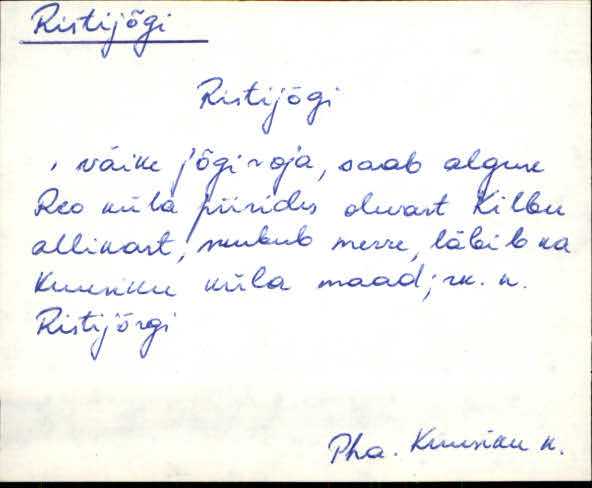 Ristijõgi
Ristijõgi
, väike jõgi-oja, saab alguse
Reo küla piirides olevast Kilbu
allikast, suubub merre, läbib ka
Kuusiku küla maad; rk. n.
Ristijõrgi
Pha. Kuusiku k.